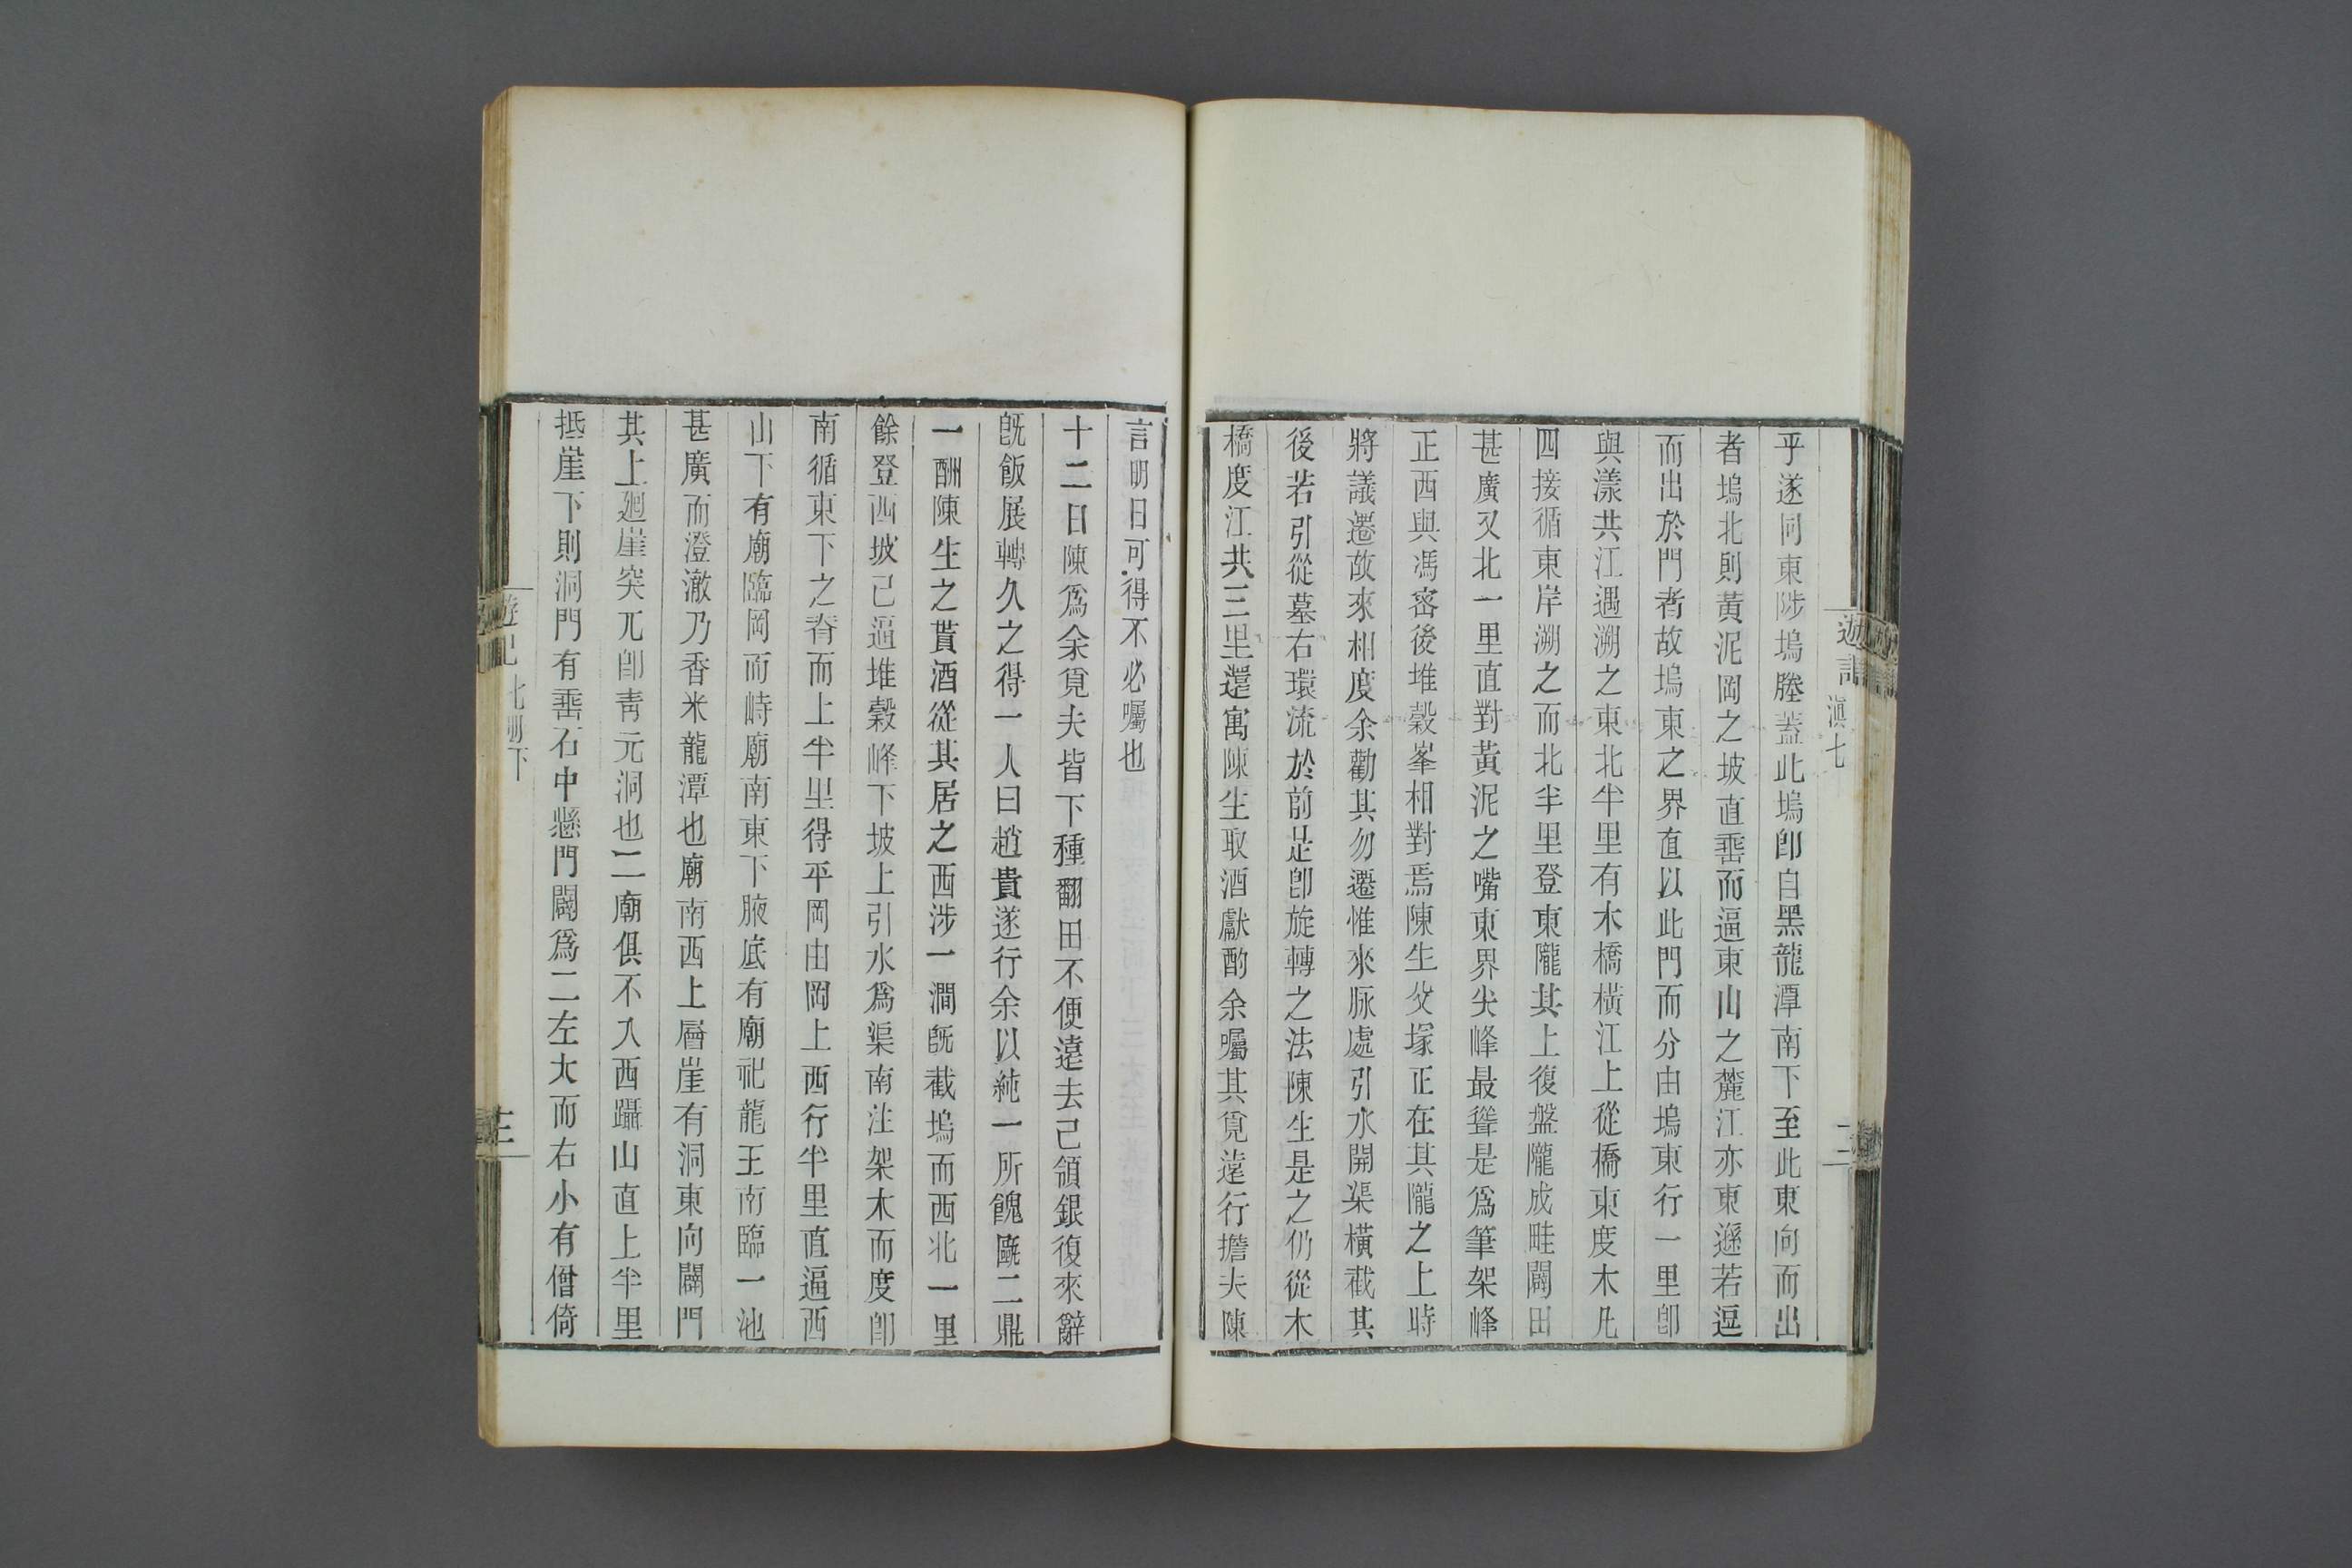 乎遂同東陟塢塍蓋此塢卽自黑龍潭南下至此東向而出
者塢北則黃泥岡之坡直垂而逼東山之麓江亦東遜若逗
而出於門者故塢東之界直以此門而分由塢東行一里卽
與漾共江遇溯之東北半里有木橋橫江上從橋東度木凡
四接循東岸溯之而北半里登東隴其上復盤隴成畦闢田
甚廣又北一里直對黃泥之嘴東界尖峰最聳是爲筆架峰
正西與馮密後堆穀峯相對焉陳生父塚正在其隴之上時
將議遷故來相度余勸其勿遷惟來脉處引水開渠橫截其
後若引從墓右環流於前足卽旋轉之法陳生是之仍從木
橋度江共三里還寓陳生取酒獻酌余囑其覓遠行擔夫陳
言明日可得不必囑也
十二日陳爲余覓夫皆下種翻田不便遠去己領銀復來辭
旣飯展轉久之得一人曰趙貴遂行余以純一所餽甌二鼎
一酬陳生之貰酒從其居之西涉一澗旣截塢而西北一里
餘登西坡已逼堆穀峰下坡上引水爲渠南注架木而度卽
南循東下之脊而上半里得平岡由岡上西行半里直逼西
山下有廟臨岡而峙廟南東下腋底有廟祀龍王南臨一池
甚廣而澄澈乃香米龍潭也廟南西上層崖有洞東向闢門
其上廻崖突兀卽靑元洞也二廟俱不入西躡山直上半里
抵崖下則洞門有垂石中懸門闢爲二左大而右小有僧倚
遊記
滇七
遊記
北冊下